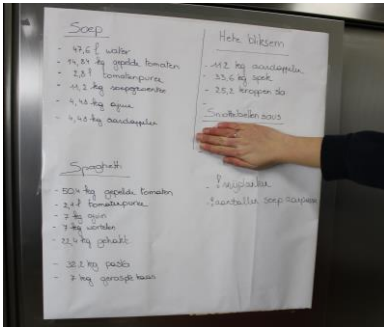 Soep
- 47,6 l water
- 14,84 kg gepelde tomaten
- 2,8 l tomatenpuree
- 11,2 kg soepgroenten
- 4,48 kg ajuin
- 4,48 kg aardappelen
Spaghetti
- 50,4 kg gepelde tomaten
- 2,7 l tomatenpuree
- 7 kg ajuin
- 7 kg wortelen
- 22,4 kg gehakt
- 39,2 kg pasta
- 7 kg geraspte kaas
Hete bliksem
- 112 kg aardappelen
- 33,6 kg spek
- 25,2 knoppen sla
-
Snottebellen saus
- ! snijplanken
- ! aantallen soep aanpassen